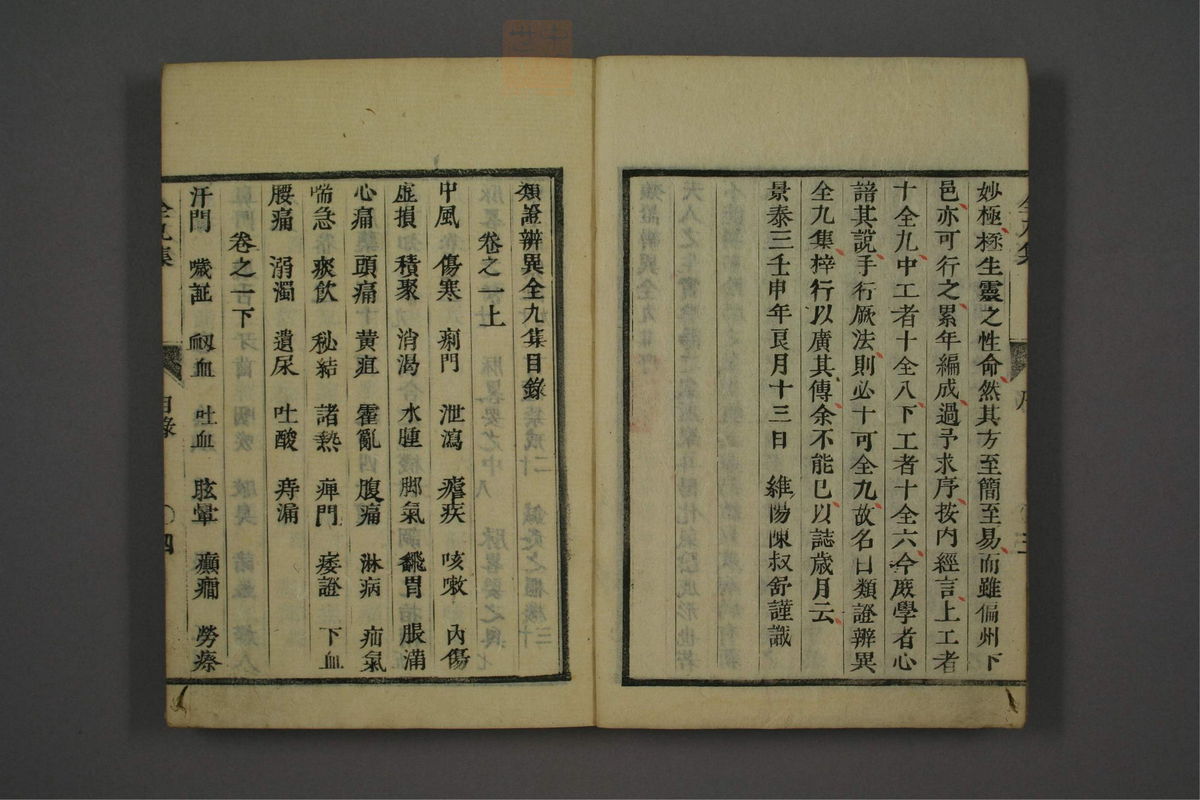 妙極拯生靈之性命然其方至簡至易而雖偏州下
邑亦可行之累年編成過予求序按內經言上工者
十全九中工者十全八下工者十全六今厥學者心
諳其說手行厥法則必十可全九故名曰類證辨異
全九集梓行以廣其傳余不能已以誌歲月云
景泰三壬申年良月十三日　維陽陳叔舒謹識
類證辨異全九集目錄
卷之一上
中風　傷寒　痢門　泄瀉　瘧疾　咳嗽　內傷
虛損　積聚　消渴　水腫　脚氣　飜胃　脹滿
心痛　頭痛　黃疸　霍亂　腹痛　淋病　疝氣
喘急　痰飲　秘結　諸熱　痺門　痿證　下血
腰痛　溺濁　遺尿　吐酸　痔漏
卷之一下
汗門　噦証　衂血　吐血　眩暈　癲癇　勞瘵
全九集　目錄　四